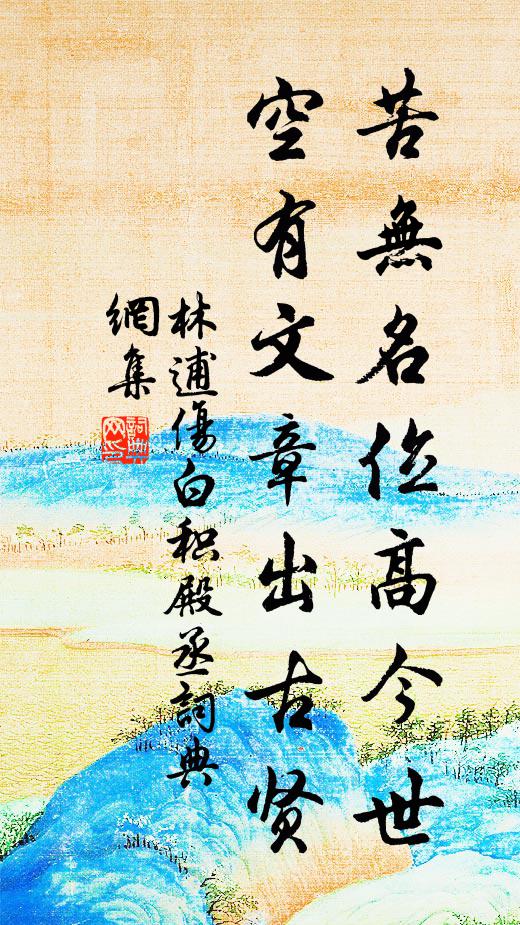 苦無名位高今世
空有文章出古贤
林逋傷白积殿丞詞典
網集